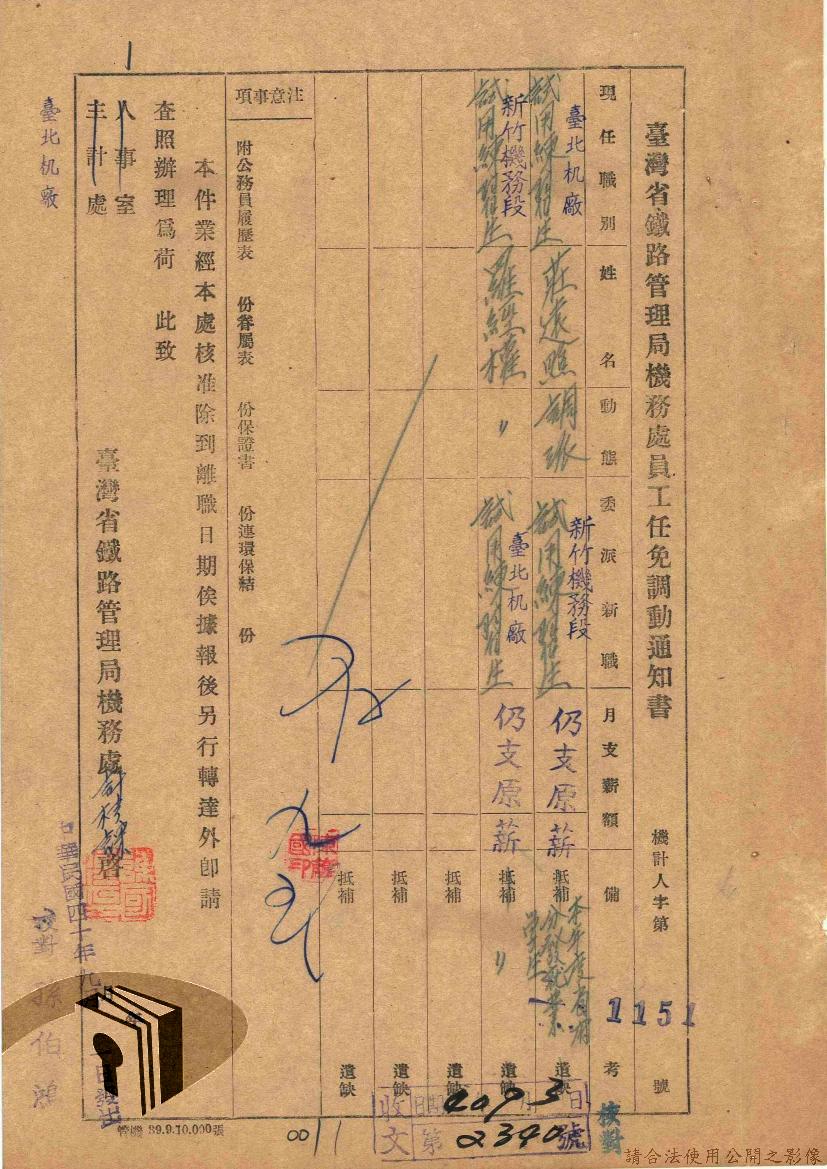 臺灣省鐵路管理局機務處員工任免調動通知書
機計人字第
1151
號
現任職別
姓名
動態
委派新職
月支薪額
備考
臺北机廠
試用練習生
莊遠照
調派
新竹機務段
試用練習生
仍支原薪
抵補
遺缺
新竹機務段
試用練習生
羅經權
〃
臺北机廠
試用練習生
仍支原薪
抵補
〃
遺缺
抵補
遺缺
抵補
遺缺
抵補
遺缺
注意事項
附公務員履歷表 份眷屬表 份保證書 份連環保結 份
本件業經本處核准除到離職日期俟據報後另行轉達外卽請
查照辦理爲荷 此致
人事室
主計處
臺北机廠
臺灣省鐵路管理局機務處
啓
華民國四十年九
日發出
校對 孫伯
管機 39.9.10.000張
收文
日期 4093
第 2340 號
核對
請合法使用公開之影像